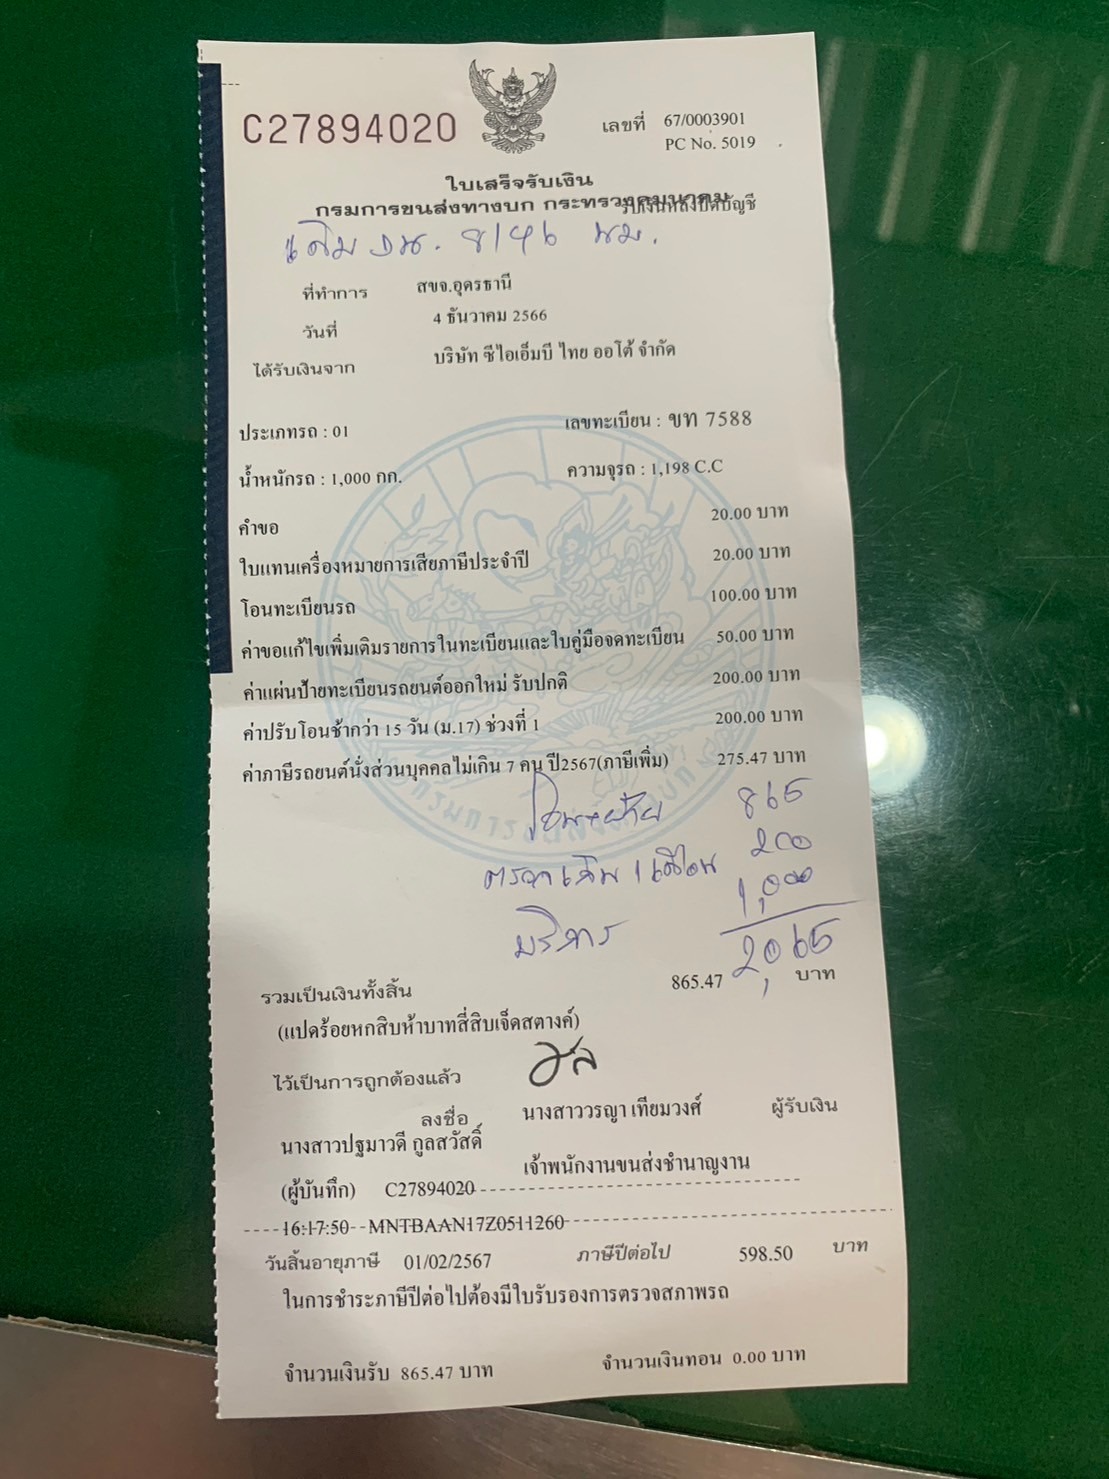 C27894020
เลขที่ 67/0003901
PC No. 5019
ใบเสร็จรับเงิน
กรมการขนส่งทางบก กระทรวงคมนาคม
รับเงินหลังปิดบัญชี
เดิม
ที่ทำการ สขจ.อุดรธานี
วันที่ 4 ธันวาคม 2566
ได้รับเงินจาก บริษัท ซีไอเอ็มบี ไทย ออโต้ จำกัด
ประเภทรถ : 01 เลขทะเบียน : ขท 7588
น้ำหนักรถ : 1,000 กก. ความจุรถ : 1,198 C.C
คำขอ 20.00 บาท
ใบแทนเครื่องหมายการเสียภาษีประจำปี 20.00 บาท
โอนทะเบียนรถ 100.00 บาท
ค่าขอแก้ไขเพิ่มเติมรายการในทะเบียนและใบคู่มือจดทะเบียน 50.00 บาท
ค่าแผ่นป้ายทะเบียนรถยนต์ออกใหม่ รับปกติ 200.00 บาท
ค่าปรับโอนช้ากว่า 15 วัน (ม.17) ช่วงที่ 1 200.00 บาท
ค่าภาษีรถยนต์นั่งส่วนบุคคลไม่เกิน 7 คน ปี2567(ภาษีเพิ่ม) 275.47 บาท
865
200
บริการ 1,000
2,065
รวมเป็นเงินทั้งสิ้น 865.47 บาท
(แปดร้อยหกสิบห้าบาทสี่สิบเจ็ดสตางค์)
ไว้เป็นการถูกต้องแล้ว
ลงชื่อ นางสาววรญา เทียมวงศ์ ผู้รับเงิน
นางสาวปฐมาวดี กูลสวัสดิ์
เจ้าพนักงานขนส่งชำนาญงาน
(ผู้บันทึก) C27894020
16:17:50 MNTBAAN17Z0511260
วันสิ้นอายุภาษี 01/02/2567 ภาษีปีต่อไป 598.50 บาท
ในการชำระภาษีปีต่อไปต้องมีใบรับรองการตรวจสภาพรถ
จำนวนเงินรับ 865.47 บาท จำนวนเงินทอน 0.00 บาท